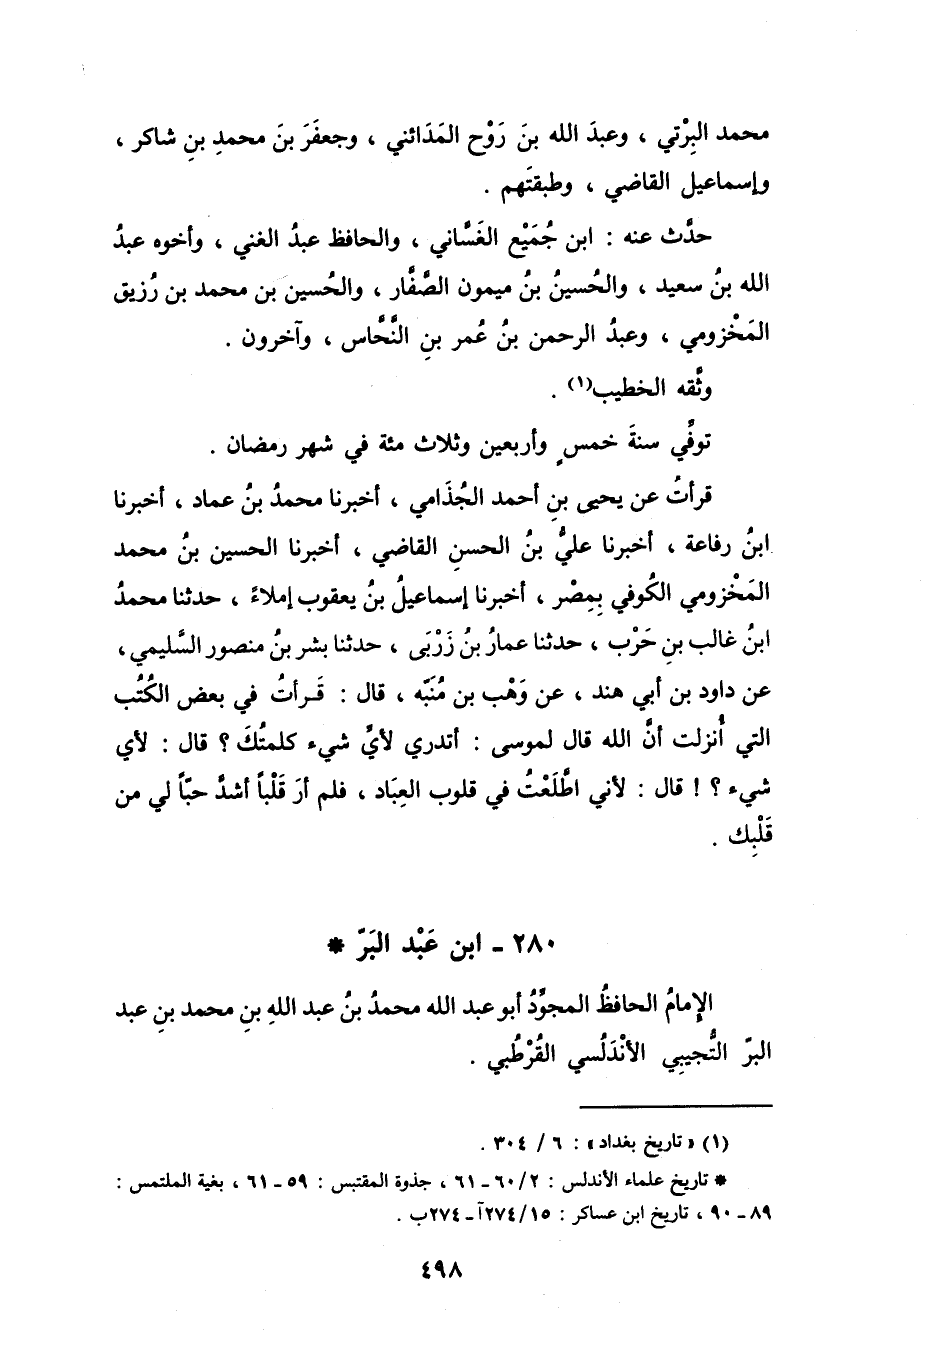 محمد البِرْتي ، وعبدَ الله بنَ رَوْح المَدَائني ، وجعفَرَ بنَ محمدِ بنِ شاكر ،
وإسماعيل القاضي ، وطبقتَهم .
حدَّث عنه : ابن جُمَيْع الغَسَّاني ، والحافظ عبدُ الغني ، وأخوه عبدُ
الله بنُ سعيد ، والحُسينُ بنُ ميمون الصَّفَّار ، والحُسين بن محمد بن رُزيق
المَخْزومي ، وعبدُ الرحمن بنُ عُمر بنِ النَّحَّاس ، وآخرون .
وثَّقه الخطيب(١) .
توفِّي سنةَ خمسٍ وأربعين وثلاث مئة في شهر رمضان .
قرأتُ عن يحيى بنِ أحمد الجُذَامي ، أخبرنا محمدُ بنُ عماد ، أخبرنا
ابنُ رفاعة ، أخبرنا عليُّ بنُ الحسنِ القاضي ، أخبرنا الحسين بنُ محمد
المَخْزومي الكُوفي بِمِصْر ، أخبرنا إسماعيلُ بنُ يعقوب إملاءً ، حدثنا محمدُ
ابنُ غالب بنِ حَرْب ، حدثنا عمارُ بنُ زَرْبَى ، حدثنا بشر بنُ منصور السَّليمي ،
عن داود بن أبي هند ، عن وَهْب بن مُنَبّه ، قال : قَرأتُ في بعض الكُتُب
التي أُنزلت أنَّ الله قال لموسى : أتدري لأيِّ شيء كلمتُكَ ؟ قال : لأي
شيء ؟ ! قال : لأني اطَّلَعْتُ في قلوب العِبَاد ، فلم أرَ قَلْباً أشدَّ حبّاً لي من
قَلْبِك .
٢٨٠ ـ ابن عَبْد البَرّ *
الإِمامُ الحافظُ المجوِّدُ أبو عبد الله محمدُ بنُ عبد اللهِ بنِ محمد بنِ عبد
البرّ التُّجيبِي الأنْدَلُسي القُرْطُبي .
(١) « تاريخ بغداد » : ٦ / ٣٠٤ .
* تاريخ علماء الأندلس : ٢/ ٦٠ ـ ٦١ ، جذوة المقتبس : ٥٩ ـ ٦١ ، بغية الملتمس :
٨٩ ـ ٩٠ ، تاريخ ابن عساكر : ١٥/ ٢٧٤آ ـ ٢٧٤ب .
٤٩٨